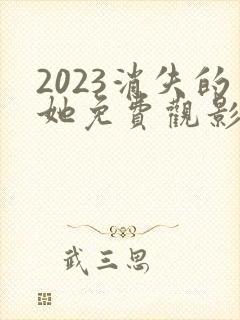 2023消失的
她免費觀影
武三思